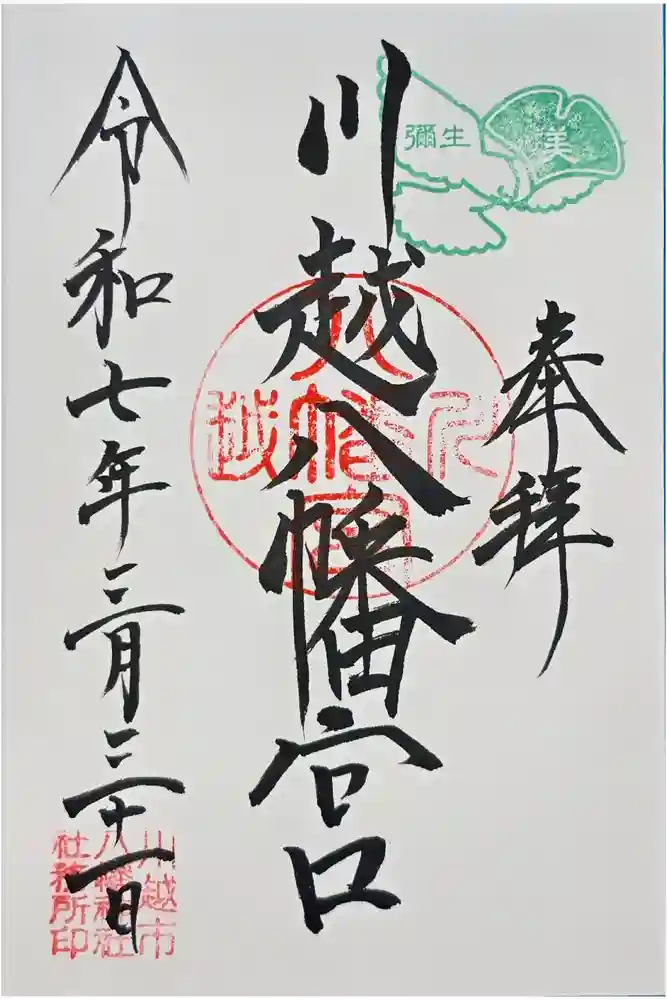 奉拝
彌生
美
川越八幡宮
川越
八幡
宮
令和七年三月三十一日
川越市
八幡神社
社務所印